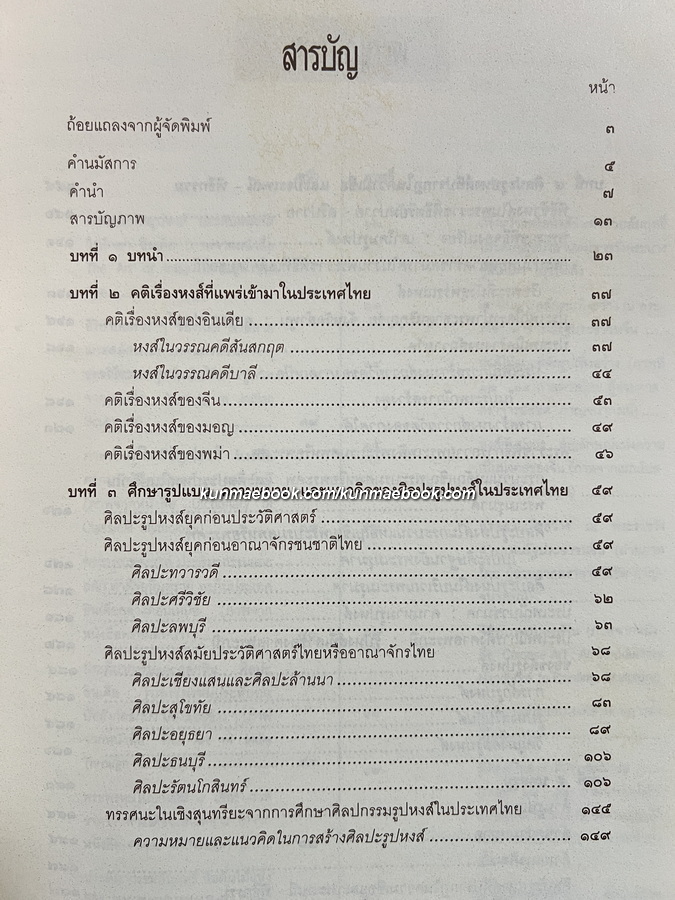 สารบัญ
หน้า
ถ้อยแถลงจากผู้จัดพิมพ์ ๓
คำนมัสการ ๕
คำนำ ๗
สารบัญภาพ ๑๓
บทที่ ๑ บทนำ ๒๓
บทที่ ๒ คติเรื่องหงส์ที่แพร่เข้ามาในประเทศไทย ๓๗
คติเรื่องหงส์ของอินเดีย ๓๗
หงส์ในวรรณคดีสันสกฤต ๓๗
หงส์ในวรรณคดีบาลี ๔๔
คติเรื่องหงส์ของจีน ๕๓
คติเรื่องหงส์ของมอญ ๔๙
คติเรื่องหงส์ของพม่า ๔๖
บทที่ ๓ ศึกษารูปแบบ ศิลปะรูปหงส์ในประเทศไทย ๕๙
kunmaebook.com/kunmaebook.com
ศิลปะรูปหงส์ยุคก่อนประวัติศาสตร์ ๕๙
ศิลปะรูปหงส์ยุคก่อนอาณาจักรชนชาติไทย ๕๙
ศิลปะทวารวดี ๕๙
ศิลปะศรีวิชัย ๖๒
ศิลปะลพบุรี ๖๓
ศิลปะรูปหงส์สมัยประวัติศาสตร์ไทยหรืออาณาจักรไทย ๖๘
ศิลปะเชียงแสนและศิลปะล้านนา ๖๘
ศิลปะสุโขทัย ๘๓
ศิลปะอยุธยา ๘๙
ศิลปะธนบุรี ๑๐๖
ศิลปะรัตนโกสินทร์ ๑๐๖
ทรรศนะในเชิงสุนทรียะจากการศึกษาศิลปกรรมรูปหงส์ในประเทศไทย ๑๔๕
ความหมายและแนวคิดในการสร้างศิลปะรูปหงส์ ๑๔๙